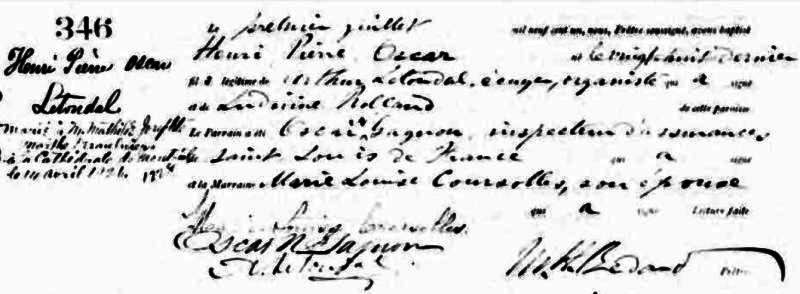 346
Henri Pierre Oscar
Letondal
marié à M. Mathilde
Marthe
à la Cathédrale de
le 14 avril 1926
Le premier juillet mil neuf cent un, nous, Prêtre soussigné, avons baptisé
Henri Pierre Oscar né le vingt huit dernier
fils légitime de Arthur Letondal, écuyer, organiste qui a signé
et de Ludivine Rolland de cette paroisse
Le Parrain a été Oscar N. Gagnon, inspecteur d'assurances
de Saint Louis de France qui a signé
et la Marraine Marie Louise Coursolles, son épouse
qui a signé Lecture faite
Coursolles.
Oscar N. Gagnon
A. Letondal
Bédard Prêtre